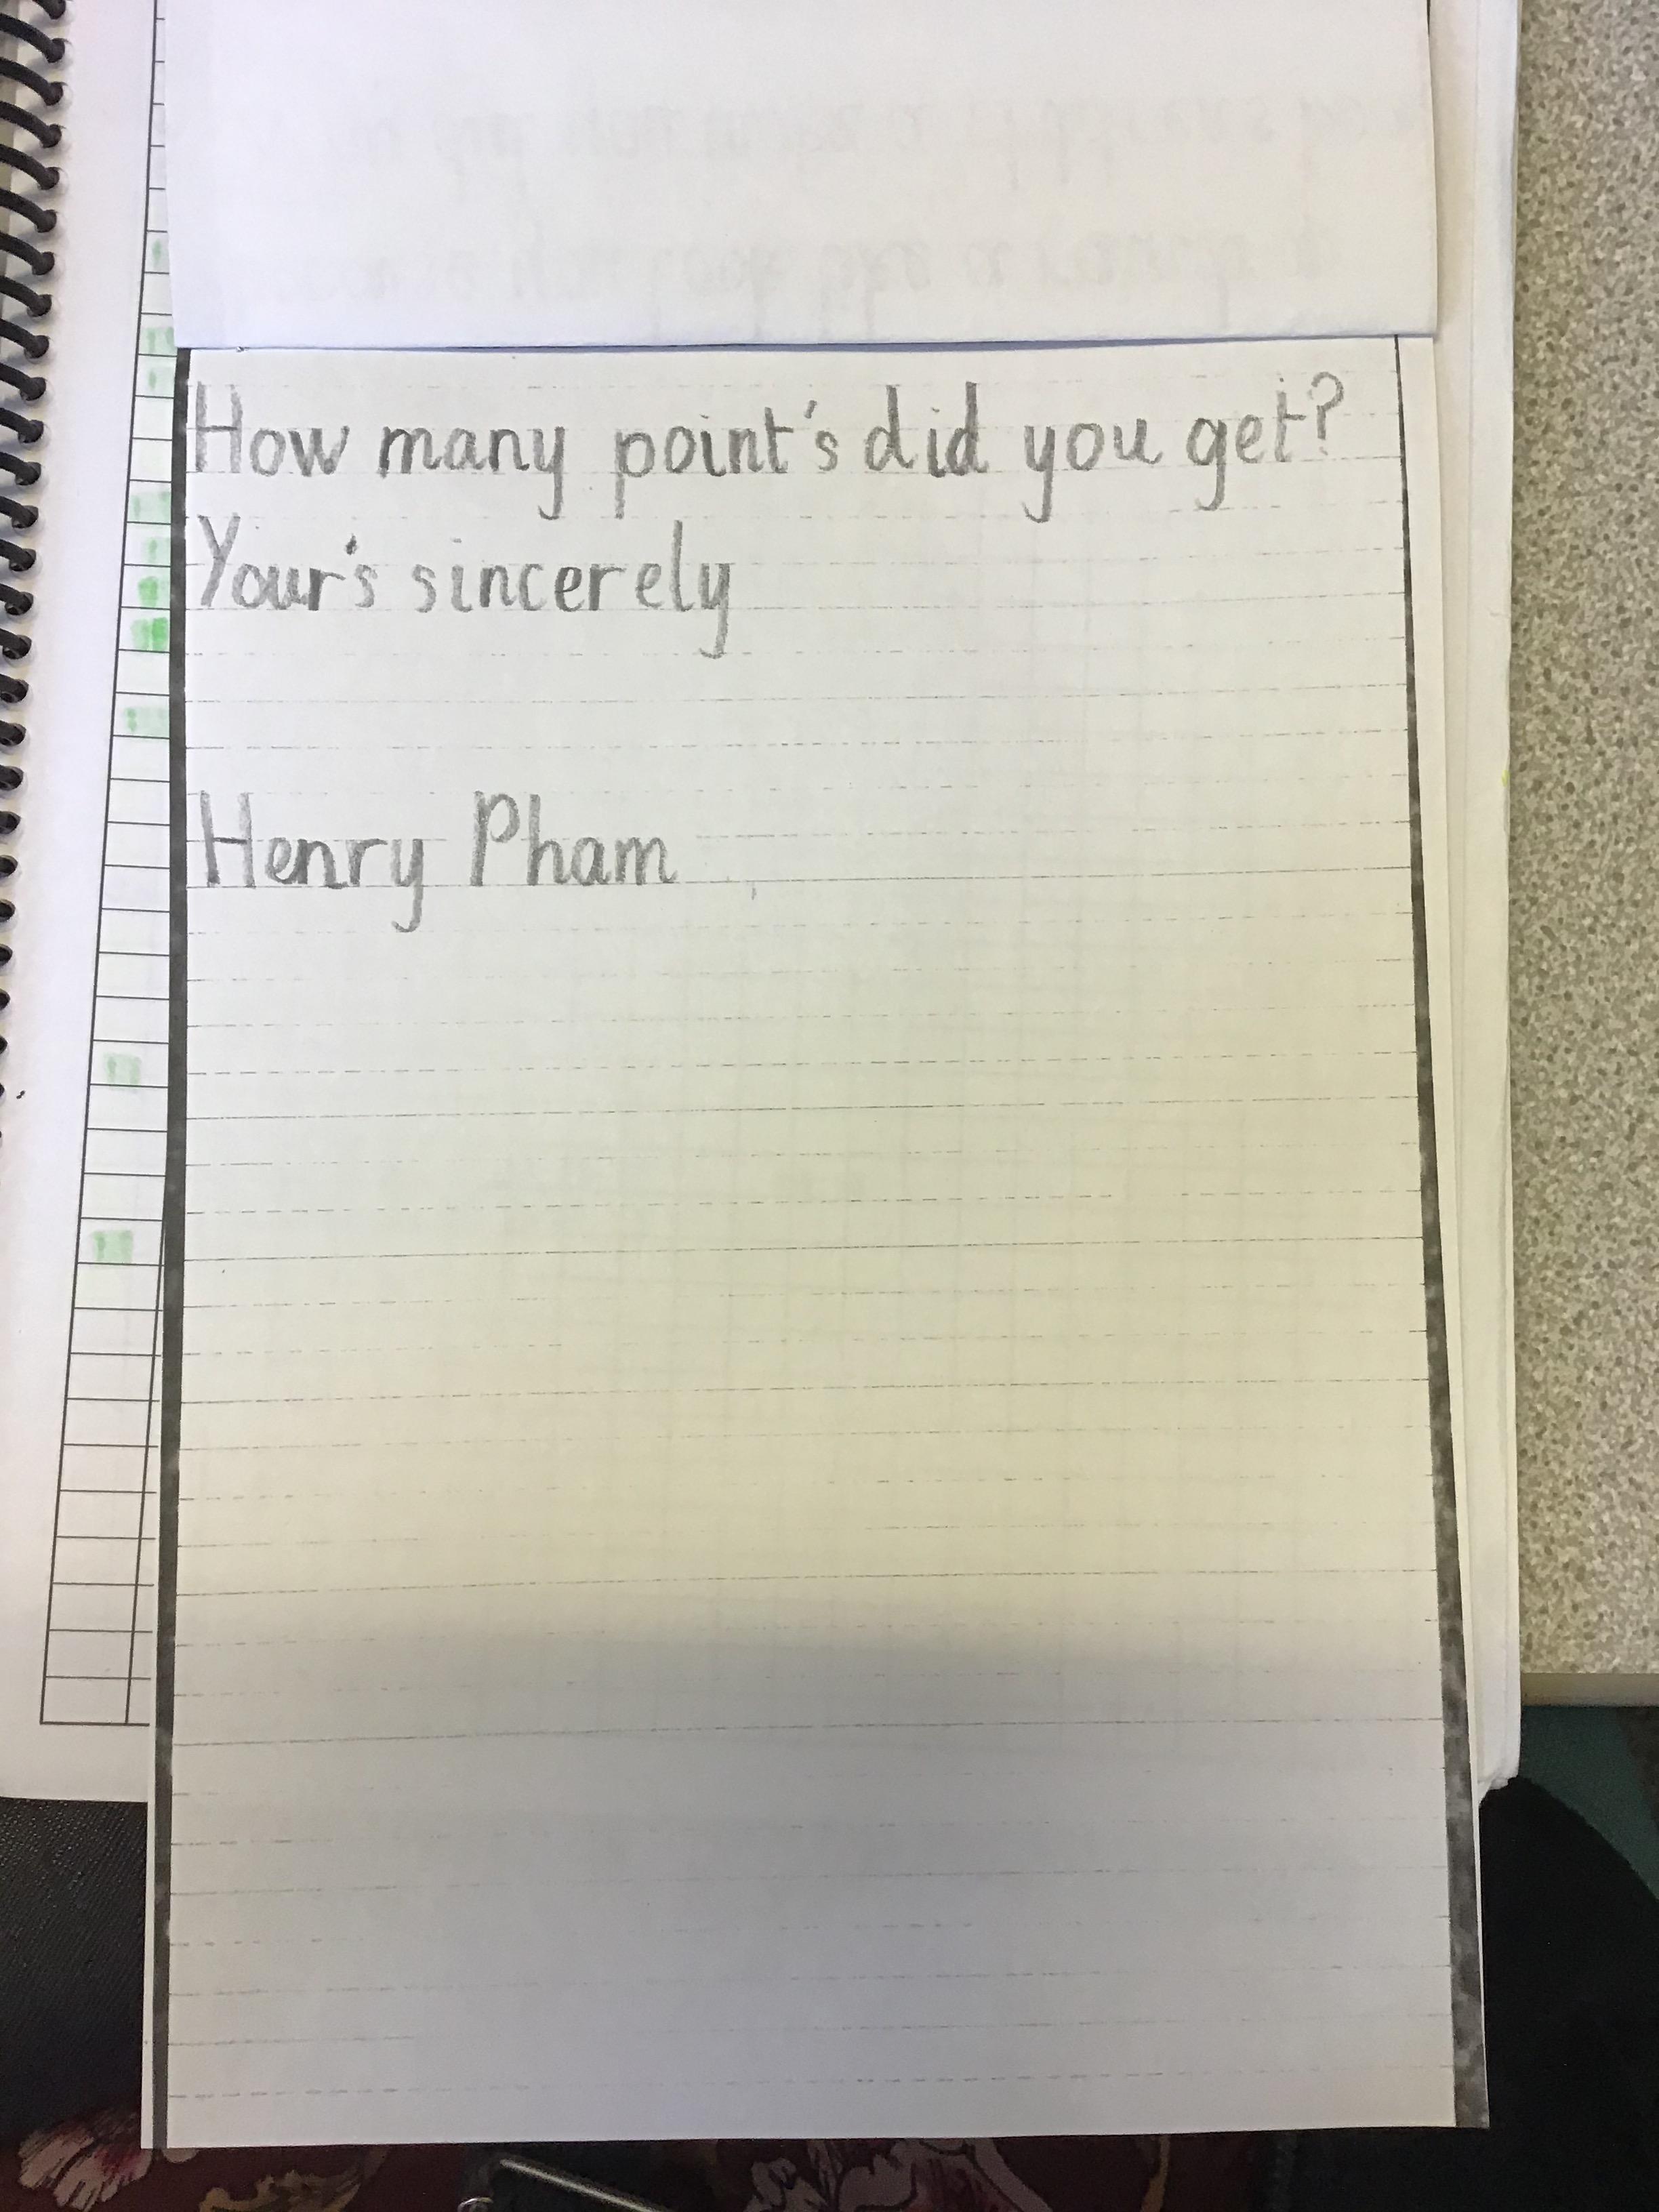 How many point's did you get?
Your's sincerely
Henry Pham